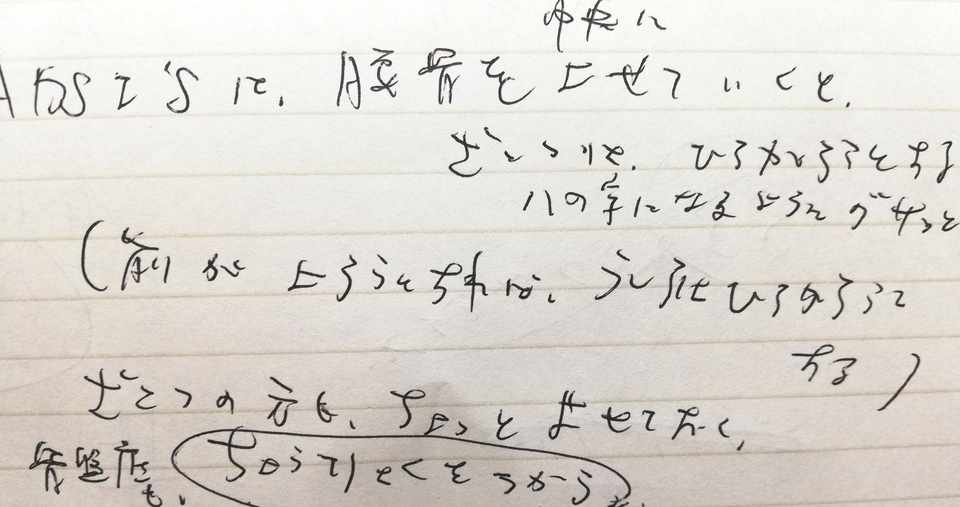 中央に
ASISに、腰骨をよせていくと、
ざこつは、ひろがろうとする
ハの字になるように グサっと
(前がよろうとすれば、うしろはひろがろうと
する)
ざこつの方も、ちょっとよせておく、
骨盤底も、